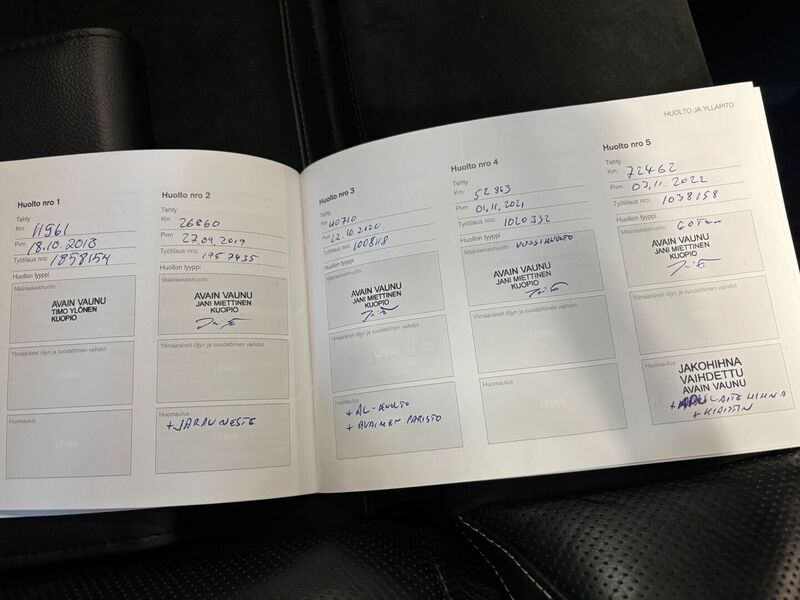 HUOLTO JA YLLÄPITO
Huolto nro 1
Tehty
Km 11961
Pvm 18.10.2018
Työtilaus nro: 1858154
Huollon tyyppi
Määräaikaishuolto
AVAIN VAUNU
TIMO YLÖNEN
KUOPIO
Ylimääräiset öljyn ja suodattimen vaihdot
LEIMA
Huomautus
LEIMA
Huolto nro 2
Tehty
Km 26860
Pvm 27.09.2019
Työtilaus nro: 1957435
Huollon tyyppi
Määräaikaishuolto
AVAIN VAUNU
JANI MIETTINEN
KUOPIO
Ylimääräiset öljyn ja suodattimen vaihdot
LEIMA
Huomautus
+ JARRUNESTE
LEIMA
Huolto nro 3
Tehty
Km 40710
Pvm 22.10.2020
Työtilaus nro: 1008118
Huollon tyyppi
Määräaikaishuolto
AVAIN VAUNU
JANI MIETTINEN
KUOPIO
Ylimääräiset öljyn ja suodattimen vaihdot
LEIMA
Huomautus
+ AL-HUOLTO
+ AVAIMEN PARISTO
Huolto nro 4
Tehty
Km 52863
Pvm 01.11.2021
Työtilaus nro: 1020332
Huollon tyyppi
Määräaikaishuolto VUOSIHUOLTO
AVAIN VAUNU
JANI MIETTINEN
KUOPIO
Ylimääräiset öljyn ja suodattimen vaihdot
LEIMA
Huomautus
LEIMA
Huolto nro 5
Tehty
Km 72462
Pvm 07.11.2022
Työtilaus nro: 1038158
Huollon tyyppi
Määräaikaishuolto
AVAIN VAUNU
JANI MIETTINEN
KUOPIO
Ylimääräiset öljyn ja suodattimen vaihdot
LEIMA
Huomautus
JAKOHIHNA
VAIHDETTU
AVAIN VAUNU
HIHNA
+ KIRISTIN